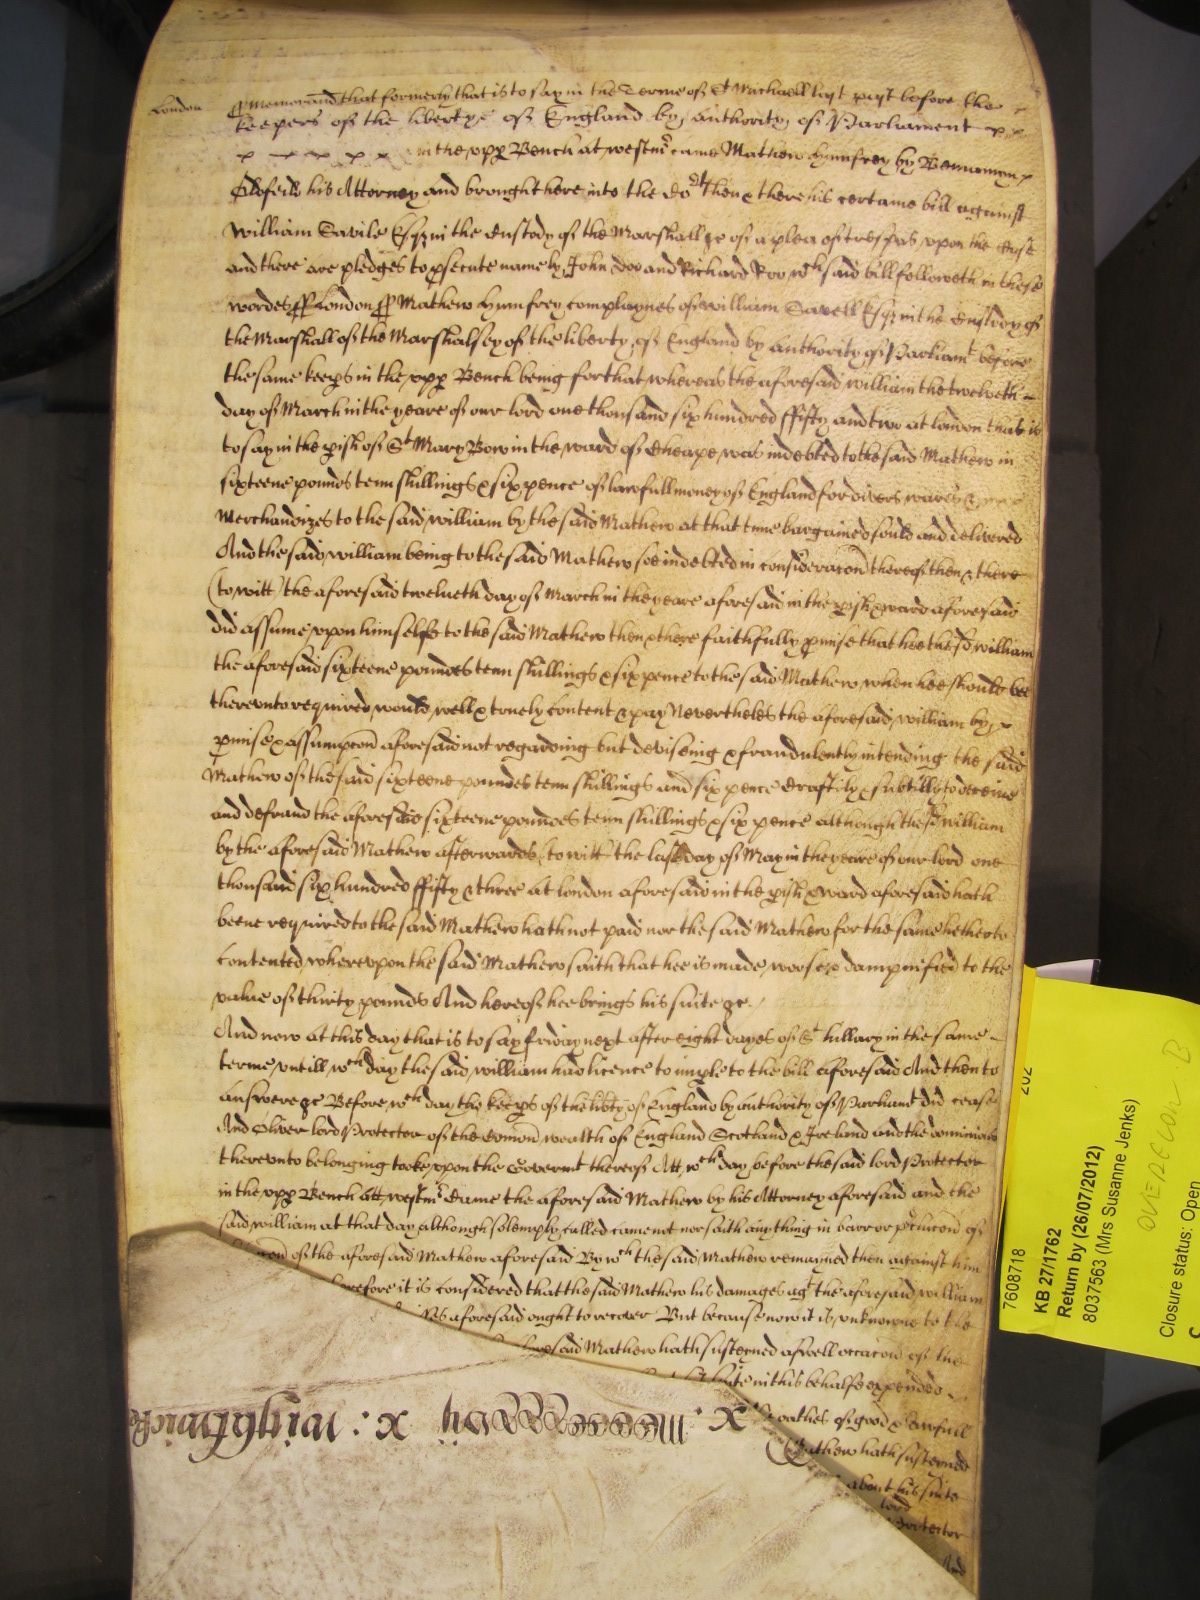 London Memorand that formerly that is to say in the Terme of St Michaell last past before the
keepers of the libertye of England by authority of Parliament x x
x x x x x in the upp Bench at westmr came Mathew Humfrey by Beniamyn
his Attorney and brought here into the Court then & there his certaine bill against
William Savile Esqr in the Custody of the Marshall &c of a plea of trespas upon the Case
and there are pledges to psecute namely John Doo and Richard Roo wch said bill followeth in these
wordes ss London ss Mathew Humfrey complaynes of William Savell Esqr in the Custody of
the Marshall of the Marshalsey of the liberty of England by authority of Parliamt before
the same keeps in the upp Bench being for that whereas the aforesaid william the twelveth
day of March in the yeare of our lord one thousand six hundred ffifty and two at london that is
to say in the pish of St Mary Bow in the ward of Cheape was indebted to the said Mathew in
sixteene pounds tenn shillings & six pence of lawfull money of England for divers wares & x x x
Merchandizes to the said william by the said Mathew at that time bargained sould and delivered
And the said william being to the said Mathew soe indebted in consideracon thereof then & there
(to witt) the aforesaid twelueth day of March in the yeare aforesaid in the pish & ward aforesaid
did assume upon himselfe & to the said Mathew then & there faithfully pmise that hee the sd william
the aforesaid sixteene poundes tenn shillings & six pence to the said Mathew when hee should bee
thereunto required would well & truely content & pay Nevertheles the aforesaid william by
pmise & assumpcon aforesaid not regarding but devising & fraudulently intending the said
Mathew of the said sixteene poundes tenn shillings and six pence Craftily & subtilly to deceive
and defraud the aforesaid sixteene poundes tenn shillings & six pence although the sd william
by the aforesaid Mathew afterwards (to witt) the last day of May in the yeare of our lord one
thousand six hundred ffifty & three at london aforesaid in the pish & ward aforesaid hath
beene required to the said Mathew hath not paid nor the said Mathew for the same hetherto
Contented whereupon the said Mathew saith that hee is made woorse & dampnified to the
value of thirty pounds And hereof hee brings his suite &c.
And now at this day that is to say friday next after eight dayes of St hillary in the same
terme untill wch day the said william had licence to imple to the bill aforesaid And then to
answere &c Before wch day the keeps of the libty of England by authority of Parliamt did cease
And Oliver lord Protector of the Comon wealth of England Scotland & Ireland and the dominions
thereunto belonging tooke upon the Goverment thereof Att wch day before the said lord Protector
in the upp Bench att westmr Came the aforesaid Mathew by his Attorney aforesaid and the
said william at that day although solemply called came not nor saith any thing in barr or pclucon of
of the aforesaid Mathew aforesaid By wch the said Mathew remayned then against him
it is Considered that the said Mathew his damages agt the aforesaid william
aforesaid ought to recover But because now it is unknowne to the
said Mathew hath susteyned aswell occacon of the
suite in this behalfe expended
oathes of good & lawfull
Mathew hath susteyned
about his suite
lord
Protector
And
x : wightwicke
7608718
202
KB 27/1762
Return by (26/07/2012)
8037563 (Mrs Susanne Jenks)
OVERCON B
Closure status: Open